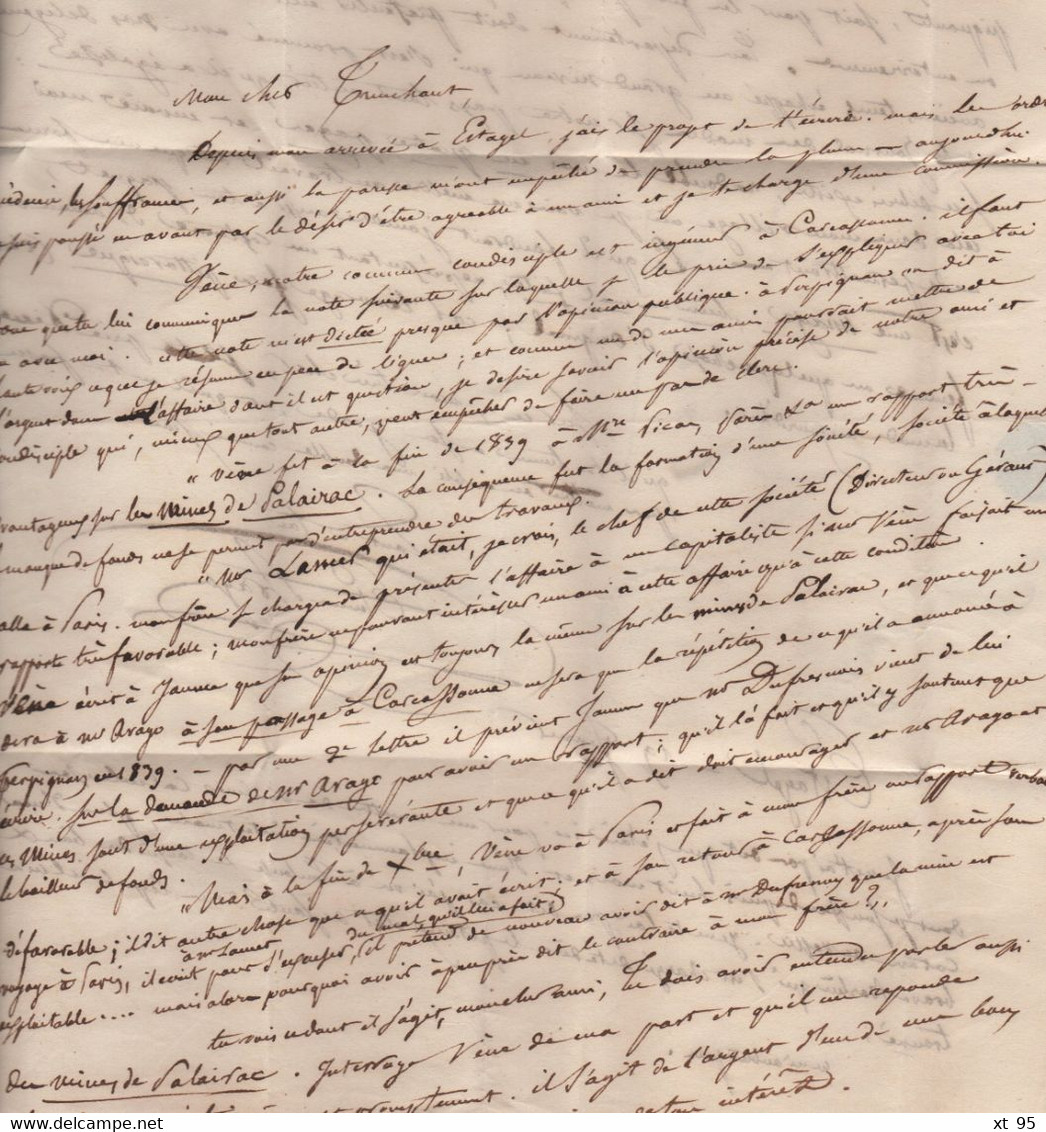 Mon cher Truichaut
Depuis mon arrivée à Estagel, j'ais le projet de t'écrire. mais les ordres
médecin, les souffrances, et aussi la paresse m'ont empêché de prendre la plume — aujourdhui
suis poussé en avant par le désir d'être agréable à un ami et je te charge d'une commission.
Vène, notre commun condisciple est ingénieur à Carcassonne. il faut
que tu lui communiques la note suivante sur laquelle je te prie de s'expliquer avec toi
avec moi. cette note m'est dictée presque par l'opinion publique. à Perpignan on dit à
haute voix ce que je résume en peu de lignes; et comme un de mes amis pourrait mettre de
l'argent dans l'affaire dont il est question, je desire savoir l'opinion précise de notre ami et
condisciple qui, mieux que tout autre, peut empêcher de faire un pas de clerc.
"Vène fit à la fin de 1839 à Mrs Picas, Parès &a un rapport très-
avantageux sur les mines de Palairac. La conséquence fut la formation d'une société, société à laquelle
le manque de fonds ne permit pas d'entreprendre des travaux.
"Mr Lamer qui était, je crois, le chef de cette société (Directeur ou Gérant)
alla à Paris. mon frère se chargea de présenter l'affaire à un capitaliste si mr Vène faisait un
rapport très favorable; mon frère ne pouvant intéresser un ami à cette affaire qu'à cette condition.
Vène écrit à Jaume que son opinion est toujours la même sur les mines de Palairac, et que ce qu'il
dira à mr Arago à son passage à Carcassonne ne sera que la répétition de ce qu'il a annoncé à
Perpignan en 1839. — par une 2e lettre il prévient Jaume que mr Dufresnois vient de lui
écrire, sur la demande de mr Arago pour avoir un rapport; qu'il l'a fait et qu'il y soutient que
les mines sont d'une exploitation perseverante et que ce qu'il a dit doit encourager et mr Arago et
le bailleur de fonds.
"Mais à la fin de Xbre, Vène va à Paris et fait à mon frère un rapport verbal
défavorable; il dit autre chose que ce qu'il avait écrit. et à son retour à Carcassonne, après son
à mr Lamer du mal qu'il lui a fait,
voyage à Paris, il écrit pour s'excuser, il prétend de nouveau avoir dit à mr Dufrenoy que la mine est
exploitable.... mais alors pourquoi avoir à peu près dit le contraire à mon frère?"
tu vois ce dont il s'agit, mon cher ami, Tu dois avoir entendu parler aussi
des mines de Palairac. Interroge Vène de ma part et qu'il me reponde
promptement. il s'agit de l'argent d'un de mes bons
intérêt.
xt 95